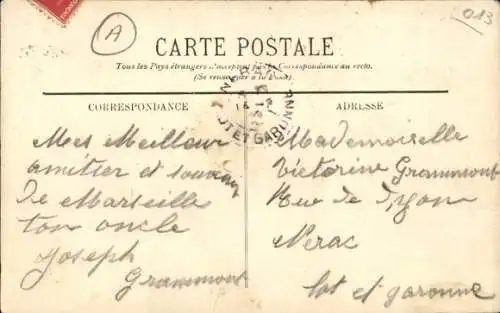 A
013
CARTE POSTALE
Tous les Pays étrangers n'acceptent pas la Correspondance au recto.
(Se renseigner à la Poste).
NERAC
LOT ET GARONNE
CORRESPONDANCE
Mes Meilleur
amitier et souvenir
de Marseille
ton oncle
Joseph
Grammont
ADRESSE
Mademoiselle
Victorine Grammont
Rue de Lyon
Nerac
lot et garonne